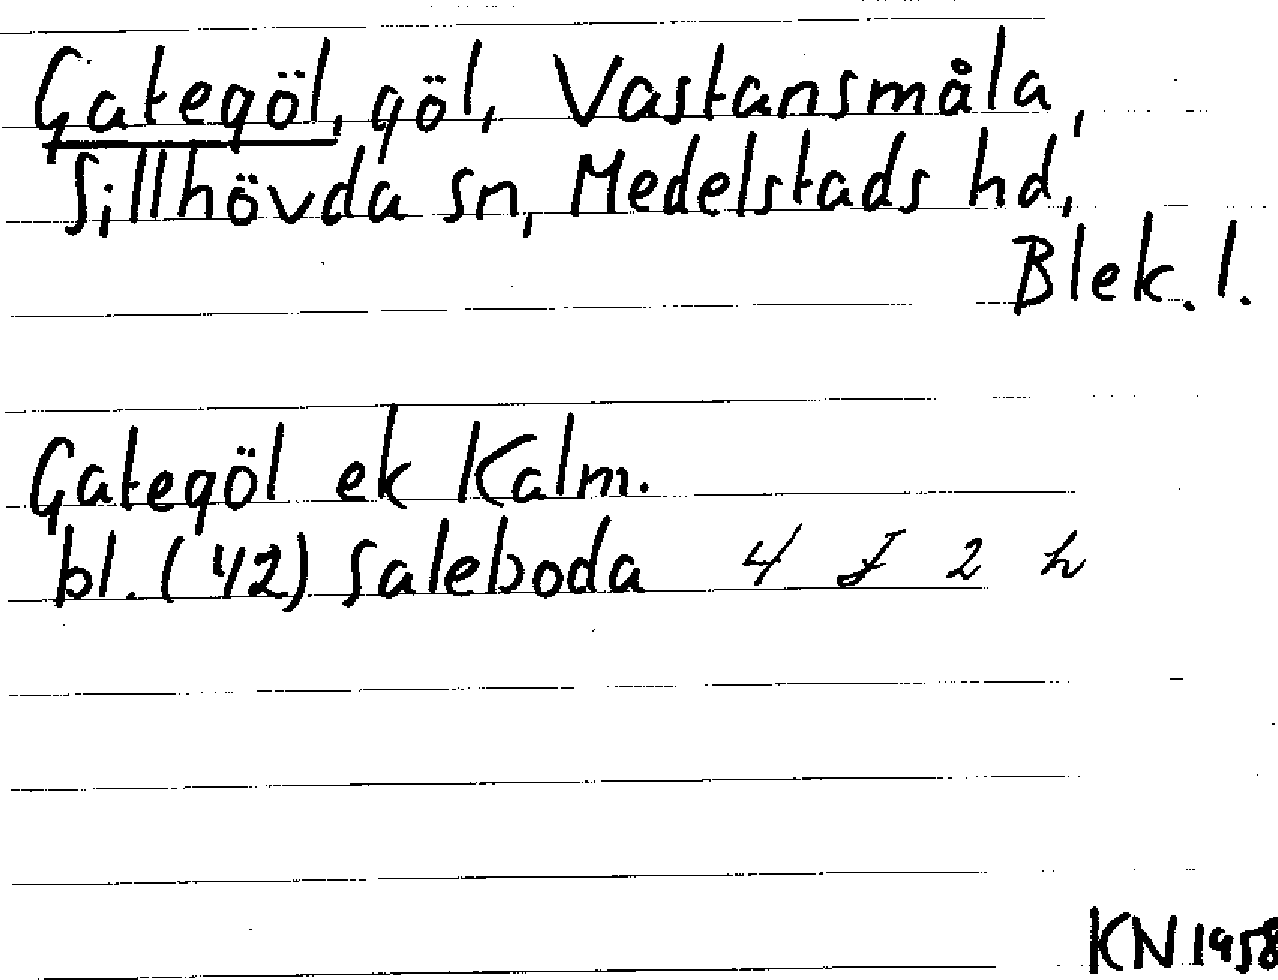 Gategöl, göl, Vastansmåla,
Sillhövda sn, Medelstads hd,
Blek. l.
Gategöl ek Kalm.
bl. (42) Saleboda 4 f 2 h
KN 1958